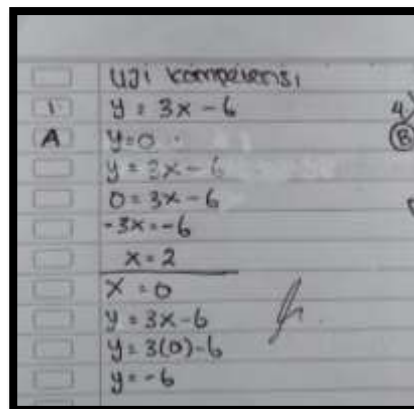 Uji kompetensi
1 y = 3x - 6
A y = 0
y = 3x - 6
0 = 3x - 6
-3x = -6
x = 2
x = 0
y = 3x - 6
y = 3(0) - 6
y = -6
4
B